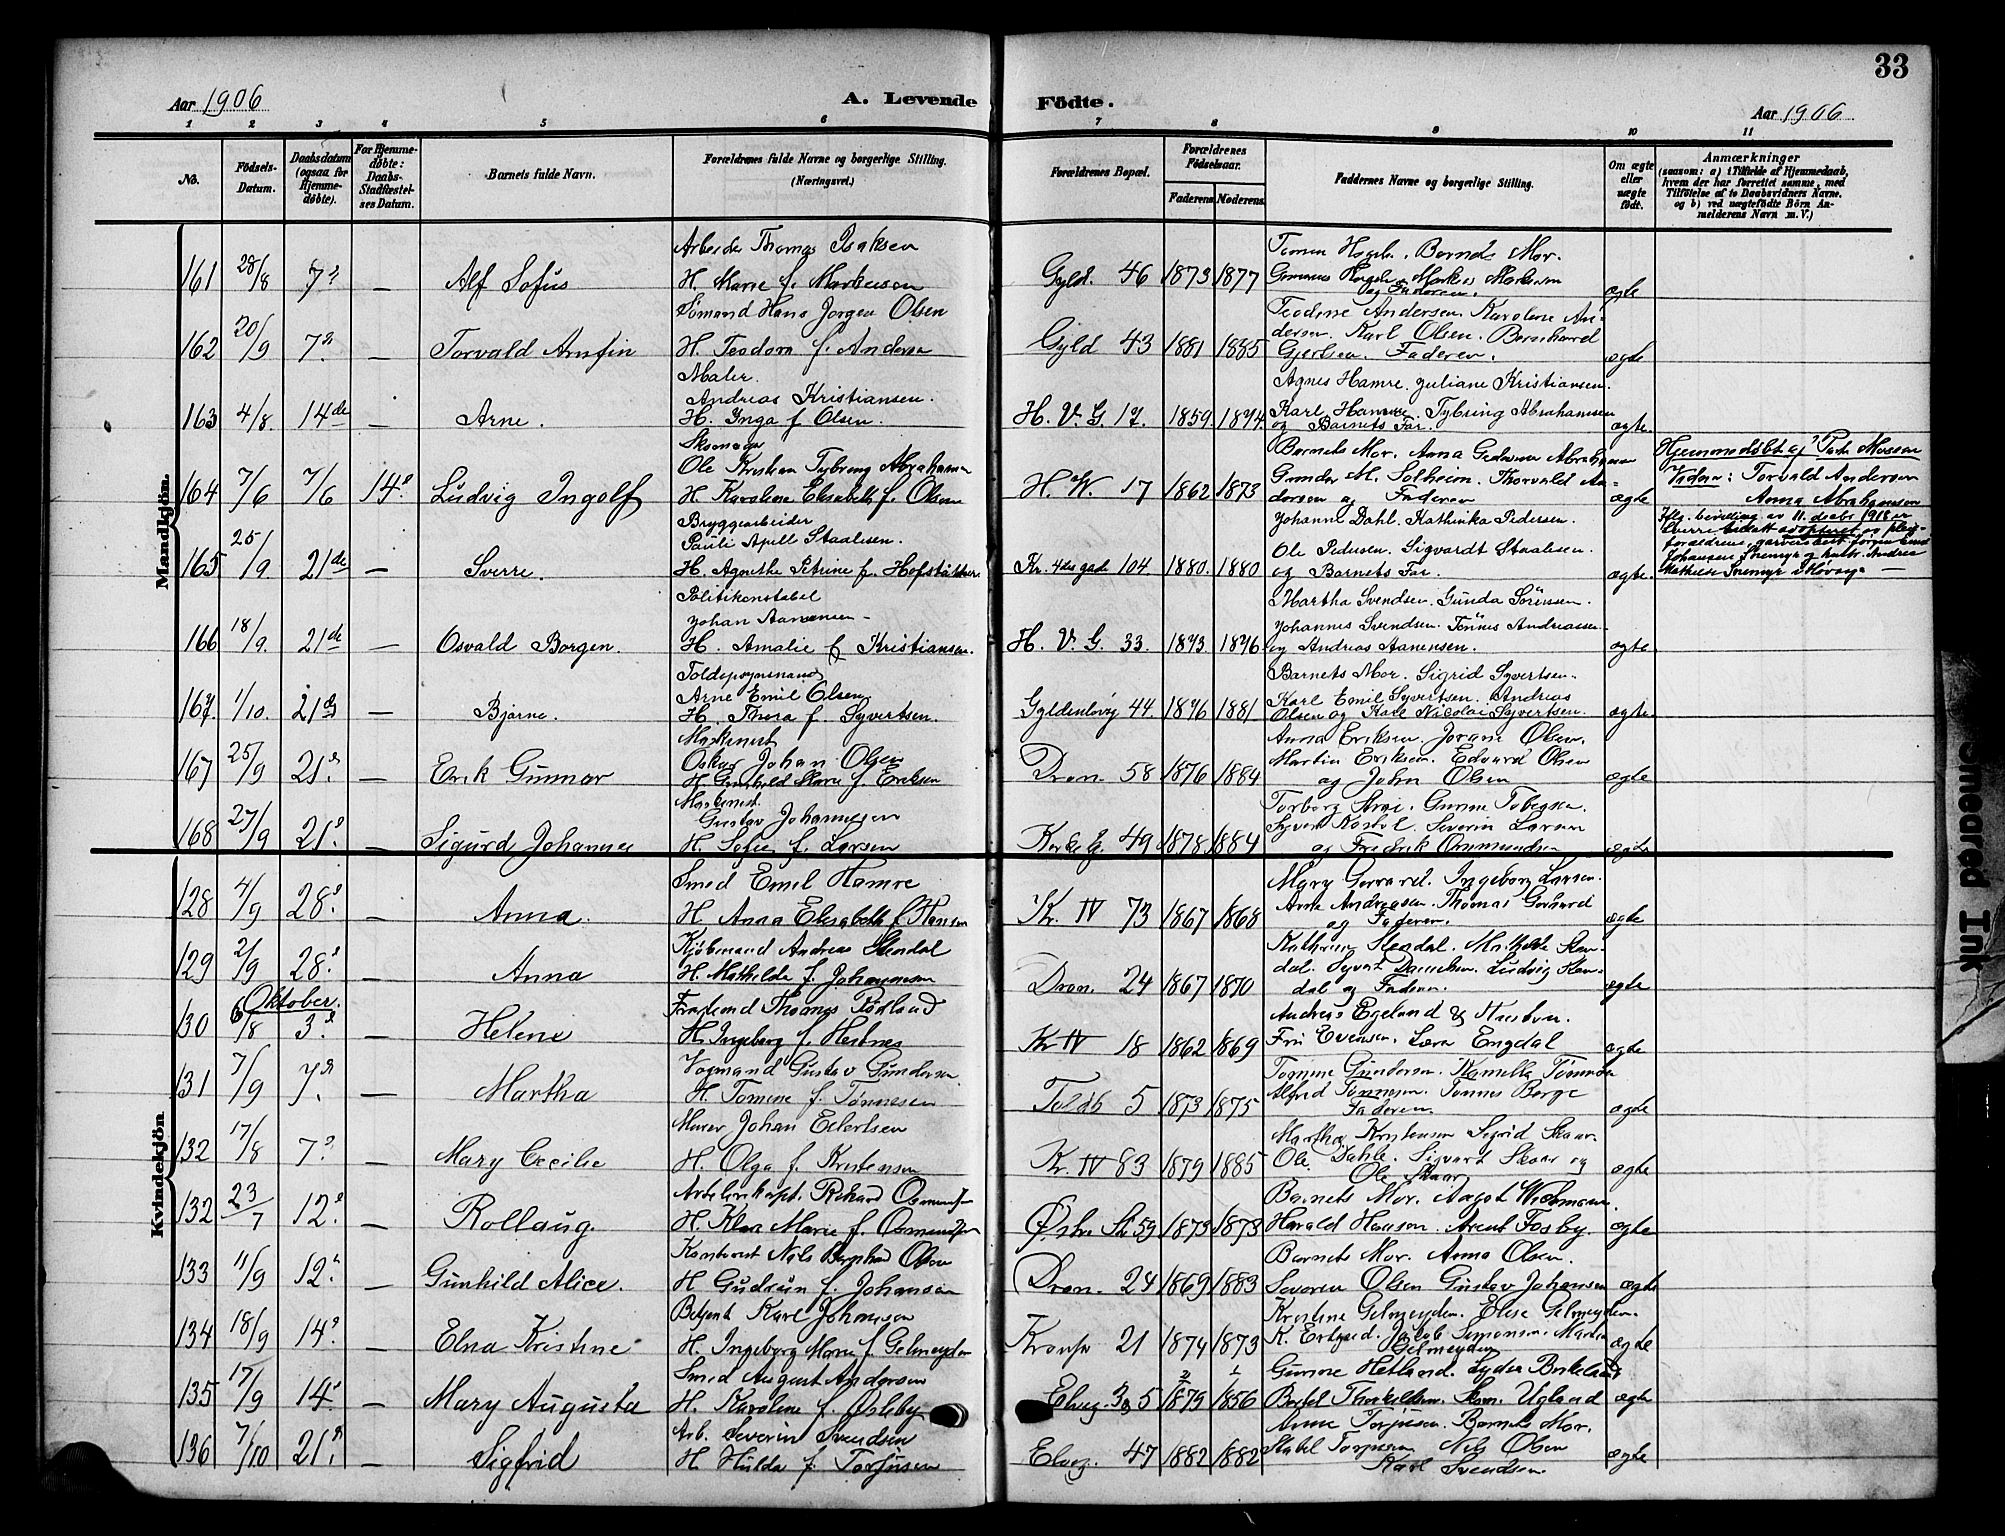 33
Aar 1906 A. Levende Födte. Aar 1906
1 2 3 4 5 6 7 8 9 10 11
No.
Födsels-
Datum.
Daabsdatum
(ogsaa for
Hjemme-
döbte).
For Hjemme-
döbte:
Daabs-
Stadfæstel-
ses Datum.
Barnets fulde Navn.
Forældrenes fulde Navne og borgerlige Stilling.
(Næringsvei.)
Forældrenes Bopæl.
Forældrenes
Födselsaar.
Faderens Moderens
Faddernes Navne og borgerlige Stilling.
Om ægte
eller
uægte
födt.
Anmærkninger
(saasom: a) i Tilfælde af Hjemmedaab,
hvem der har forrettet samme, med
Tilföielse af to Daabsvidners Navne.
og b) ved uægtefödte Börn An-
melderens Navn m. V.)
Mandkjön.
Arbeider Thomas Isaksen
161 28/8 7de — Alf Sofus H. Marie f. Markusen Gyld. 46 1873 1877
og Faderen. ægte
Sömand Hans Jorgen Olsen
Teodine Andersen. Karolene An-
162 20/9 7de — Torvald Arnfin H. Teodora f. Andersen Gyld 43 1881 1885 dersen. Karl Olsen. Bernhard
Gjertsen. Faderen. ægte
Maler.
Andreas Kristiansen.
Agnes Hamre. Juliane Kristiansen.
163 4/8. 14de — Arne. H. Inga f. Olsen. H. V. G. 17. 1859. 1874. Karl Hamre. Tybring Abrahamsen
og Barnets Far. ægte.
Skomager
Ole Kristian Tybring Abrahamsen
Barnets Mor. Anna Abrahamsen
164 7/6 7/6 14de Ludvig Ingolf H. Karolene Elisabeth f. Olsen H. W. 17 1862 1873 Gunder M. Solheim. Thorvald An-
dersen og Faderen ægte
Hjemmedöbt af
Vidner: Torvald Andersen
Anna Abrahamsen
Bryggearbeider
Pauli Apell Staalesen.
Johanne Dahl. Kathinka Pedersen.
Ole Pedersen. Sigvardt Staalesen.
165 25/9. 21de — Sverre. H. Agnethe Petrine f. Hofstätter Kr. 4des gade 104 1880. 1880 og Barnets Far. ægte.
Ifg. bevilling av 11. decbr. 1918 er
Sverre adopteret av pleie-
forældrene, garver
Johansen og hustr. Andrea
Mathilde i Høvaag —
Politikonstabel
Johan Aanensen -
Martha Svendsen. Gunda Sörensen.
Johannes Svendsen. Tönnes Andreassen
166 18/9. 21de — Osvald Borgen. H. Amalie f. Kristiansen. H. V. G. 33. 1873 1876 og Andreas Aanensen. ægte
Toldopsynsmand
Arne Emil Olsen
Barnets Mor. Sigrid Syvertsen.
167. 1/10. 21de — Bjarne. H. Thora f. Syvertsen. Gyldenlövsg 44. 1876 1881 Karl Emil Syvertsen. Andreas
Olsen og Karl Nicolai Syvertsen. ægte.
Maskinist
Oskar Johan Olsen
Anna Eriksen. Jorane Olsen.
167 25/9 21de — Erik Gunnar H. Gunhild Marie f. Eriksen Dron. 58 1876 1884 Martin Eriksen. Edvard Olsen
og John Olsen ægte
Maskinist.
Gustav Johannesen
168 27/9 21de — Sigurd Johannes H. Sofie f. Larsen Kirkeg. 49 1878 1884 Severin Larsen
og Fredrik Osmundsen ægte
Kvindekjön
Smed Emil Hamre
Mary Gerrard. Ingeborg Larsen.
128 4/9 28de — Anna. H. Anna Elisabeth f. Hansen Kr. IV 73 1867 1868 Anna Andreasen. Thomas Gerrard
og Faderen. ægte
Kjöbmand Andreas Stendal
129 2/9 28de — Anna H. Mathilde f. Johannesen Dron. 24 1867 1870 Ludvig Sten-
dal og Faderen. ægte
Oktober.
Thomas Rödland
Andreas Egeland & Hustru.
130 6/8 3de Helene H. Ingeborg f. Hestnes Kr IV 18 1862 1869 Evensen. Lara Engdal ægte
Vognmand Gustav Gundersen
Tomine Gundersen. Kamilla Tönnesen
131 7/9 7de — Martha H. Tomine f. Tönnesen Toldb 5 1873 1875 Alfred Tönnesen. Tönnes Berge
Faderen ægte
Murer Johan Eilertsen
Martha Kristensen Sigrid Skaar.
132 17/8 7de — Mary Cecilie H. Olga f. Kristensen Kr. IV 83 1879 1885 Ole Dahle. Sigvart Skaar og
Ole Skaar ægte
Rikard Osmundsen
Barnets Mor. Aagot
132 23/7 12de — Rollaug. H. Klara Marie f. Osmundsen Østre St 59 1873 1873 Harald Hansen. Arent Fosby. ægte
Kontorist Nils Berghard Olsen
Barnets Mor. Anna Olsen.
133 11/9 12te — Gunhild Alice. H. Gudrun f. Johansen Dron. 24 1869 1883 Severen Olsen Gustav Johansen ægte
Betjent Karl Johnsen
Kristine Gelmeyden. Elise Gelmeyden.
134 18/9 14de — Elna Kristine H. Ingeborg Marie f. Gelmeyden Kronpr 21 1874 1873 Jakob Simonsen. Martin
Gelmeyden ægte
Smed August Andersen
Gunne Hetland. Lydia Birkeland
135 17/9 14de — Mary Augusta H. Karolene f. Osleby Elveg. 35 1879 1856 Bertel Thorkildsen. Ugland ægte
Arb. Severin Svendsen
Anne Torjusen. Barnets Mor.
136 7/10 21de — Sigfrid H. Hulda f. Torjusen Elveg. 47 1882 1882 Torjusen Nils Olsen
Karl Svendsen. ægte
Smeared Ink